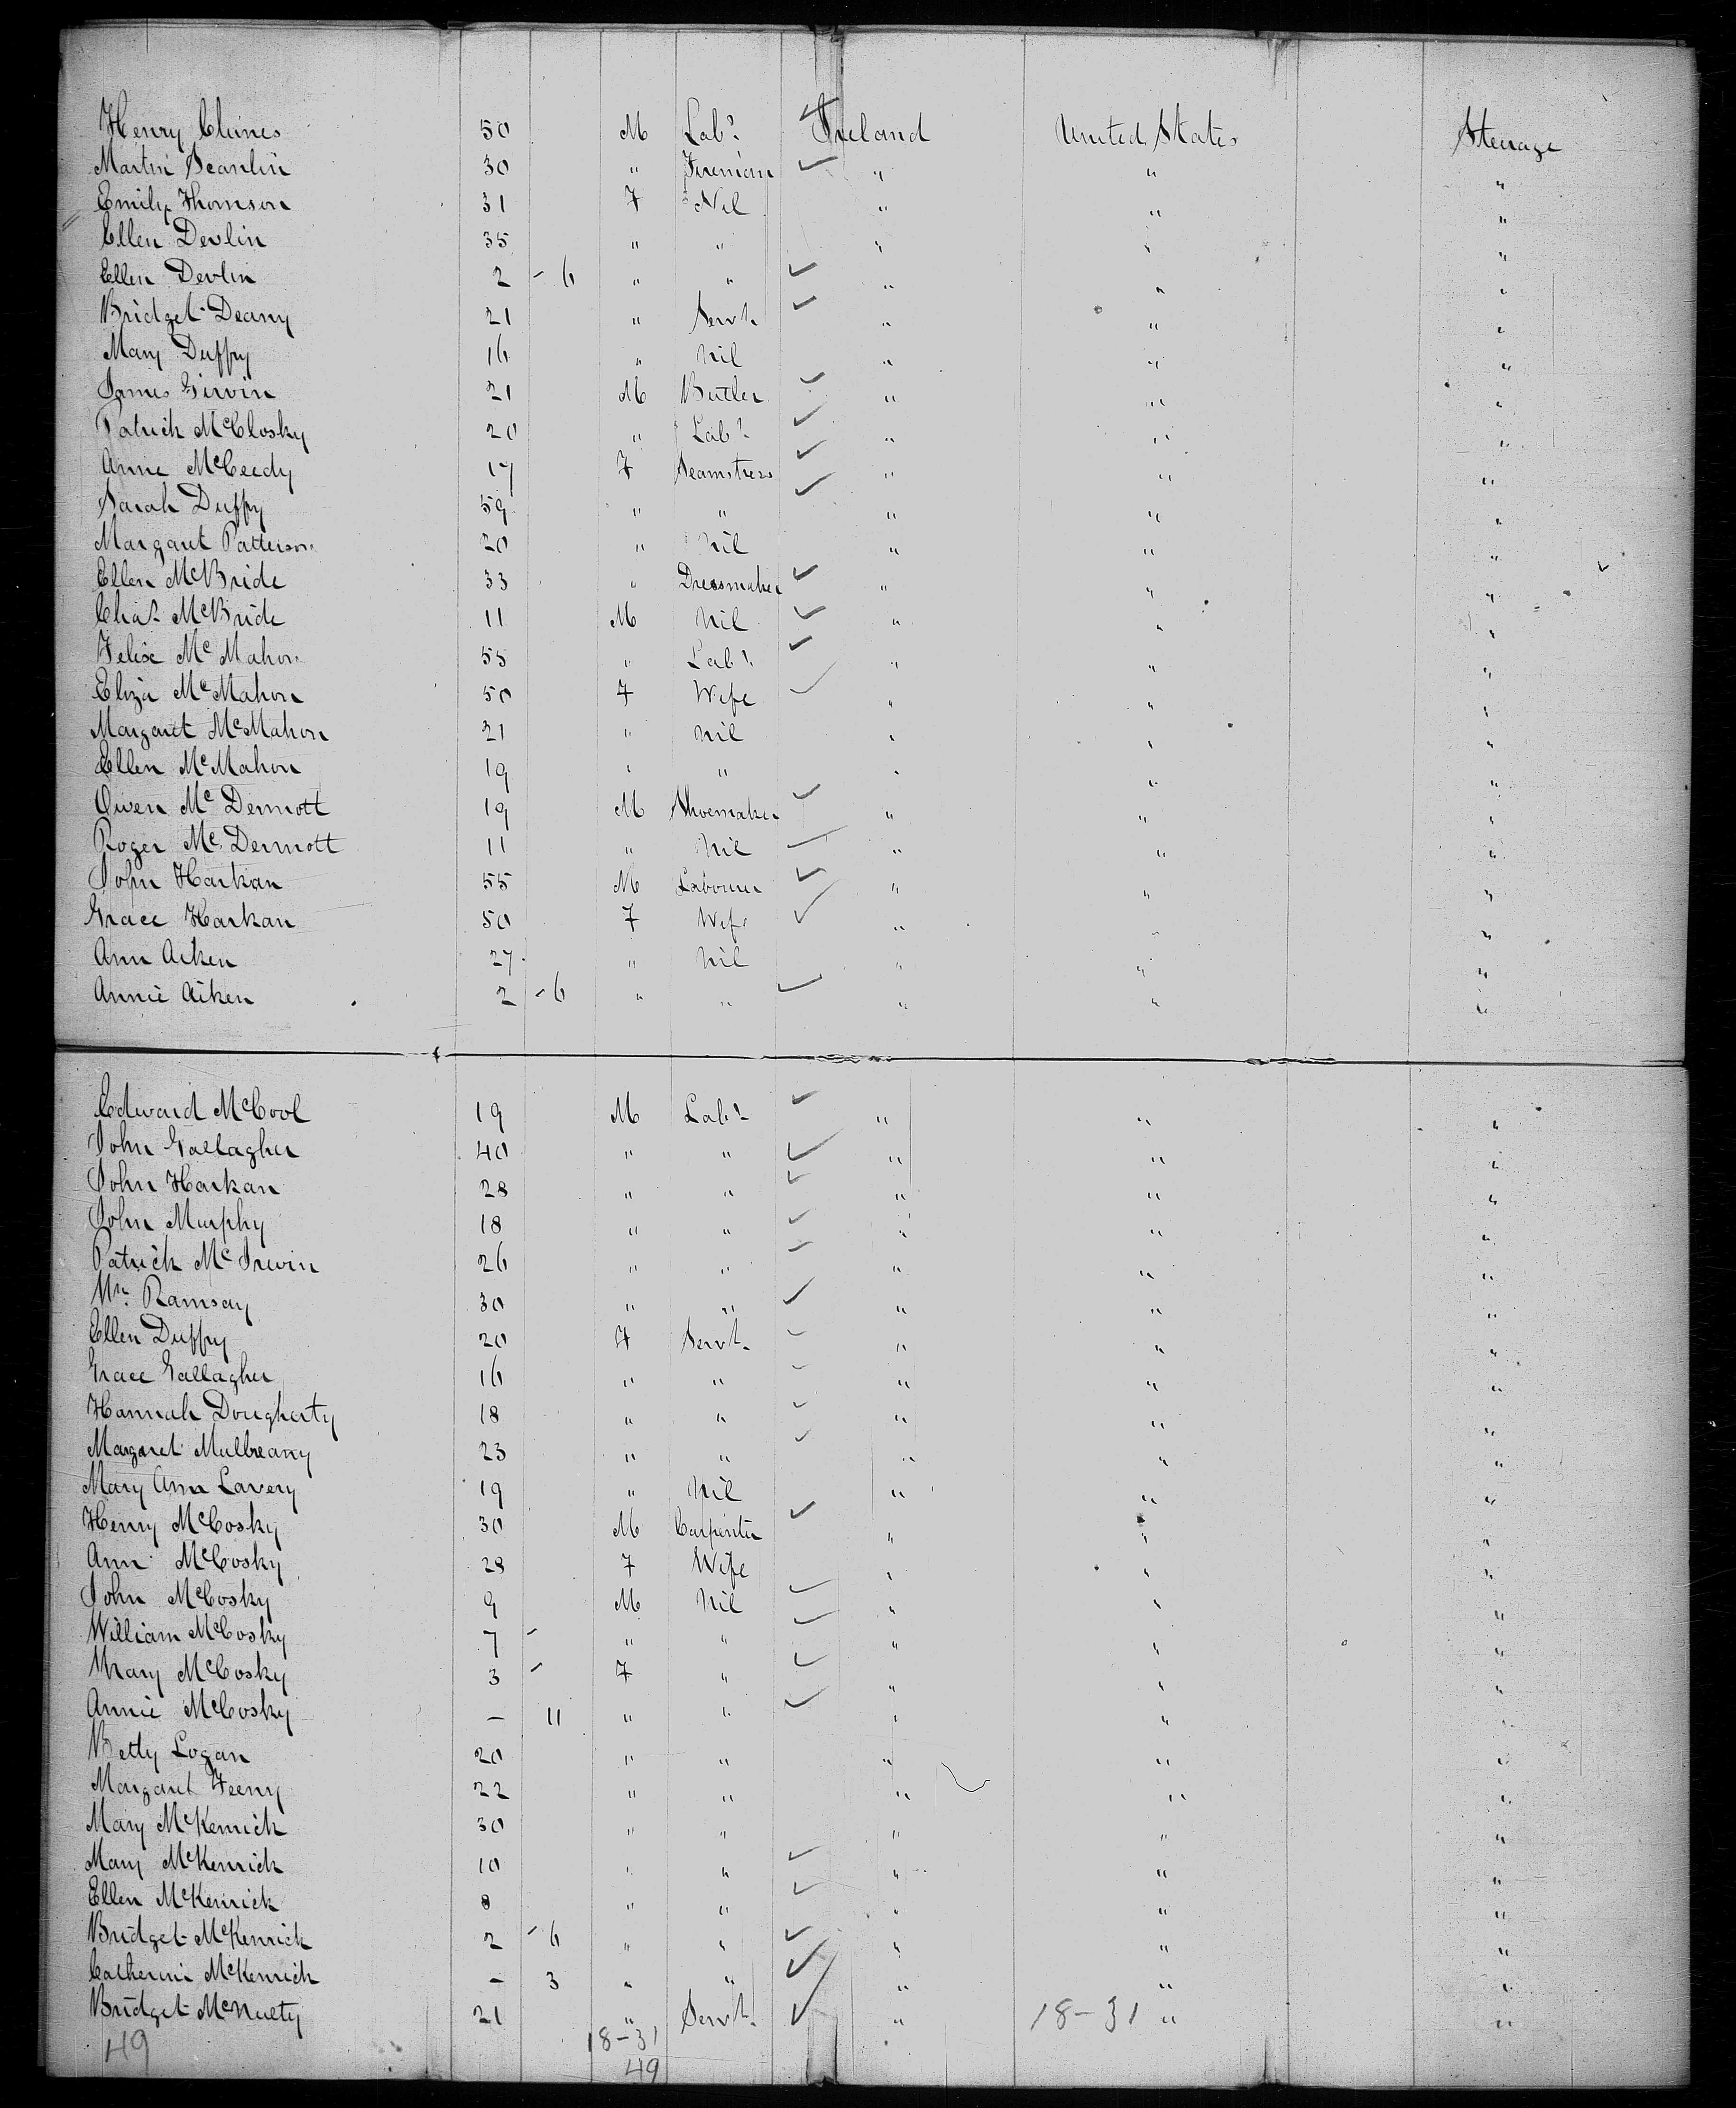 Henry Clunes 50 M Lab.r Ireland United States Steerage
Martin Scanlin 30 " Fireman " " "
Emily Thomson 31 F Nil " " "
Ellen Devlin 35 " " " " "
Ellen Devlin 2 - 6 " " " " "
Bridget Deany 21 " Servt. " " "
Mary Duffy 16 " Nil " " "
James Girvin 21 M Butler " " "
Patrick McClosky 20 " Lab.r " " "
Annie McCeedy 17 F Seamstress " " "
Sarah Duffy 59 " " " " "
Margaret Patterson 20 " Nil " " "
Ellen McBride 33 " Dressmaker " " "
Chas. McBride 11 M Nil " " "
Felix McMahon 55 " Lab.r " " "
Eliza McMahon 50 F Wife " " "
Margaret McMahon 21 " Nil " " "
Ellen McMahon 19 " " " " "
Owen McDermott 19 M Shoemaker " " "
Roger McDermott 11 " Nil " " "
John Harkan 55 M Labourer " " "
Grace Harkan 50 F Wife " " "
Ann Aiken 27 " Nil " " "
Annie Aiken 2 - 6 " " " " "
Edward McCool 19 M Lab.r " " "
John Gallagher 40 " " " " "
John Harkan 28 " " " " "
John Murphy 18 " " " " "
Patrick McIrwin 26 " " " " "
Wm. Ramsay 30 " " " " "
Ellen Duffy 20 F Servt. " " "
Grace Gallagher 16 " " " " "
Hannah Dougherty 18 " " " " "
Margaret Mulbreany 23 " " " " "
Mary Ann Lavery 19 " Nil " " "
Henry McCosky 30 M Carpenter " " "
Ann McCosky 28 F Wife " " "
John McCosky 9 M Nil " " "
William McCosky 7 - " " " " "
Mary McCosky 3 - F " " " "
Annie McCosky - 11 " " " " "
Betty Logan 20 " " " " "
Margaret Feeny 22 " " " " "
Mary McKenrick 30 " " " " "
Mary McKenrick 10 " " " " "
Ellen McKenrick 8 " " " " "
Bridget McKenrick 2 - 6 " " " " "
Catherine McKenrick - 3 " " " " "
Bridget McNulty 21 " Servt. " 18-31 " "
49 18-31
49